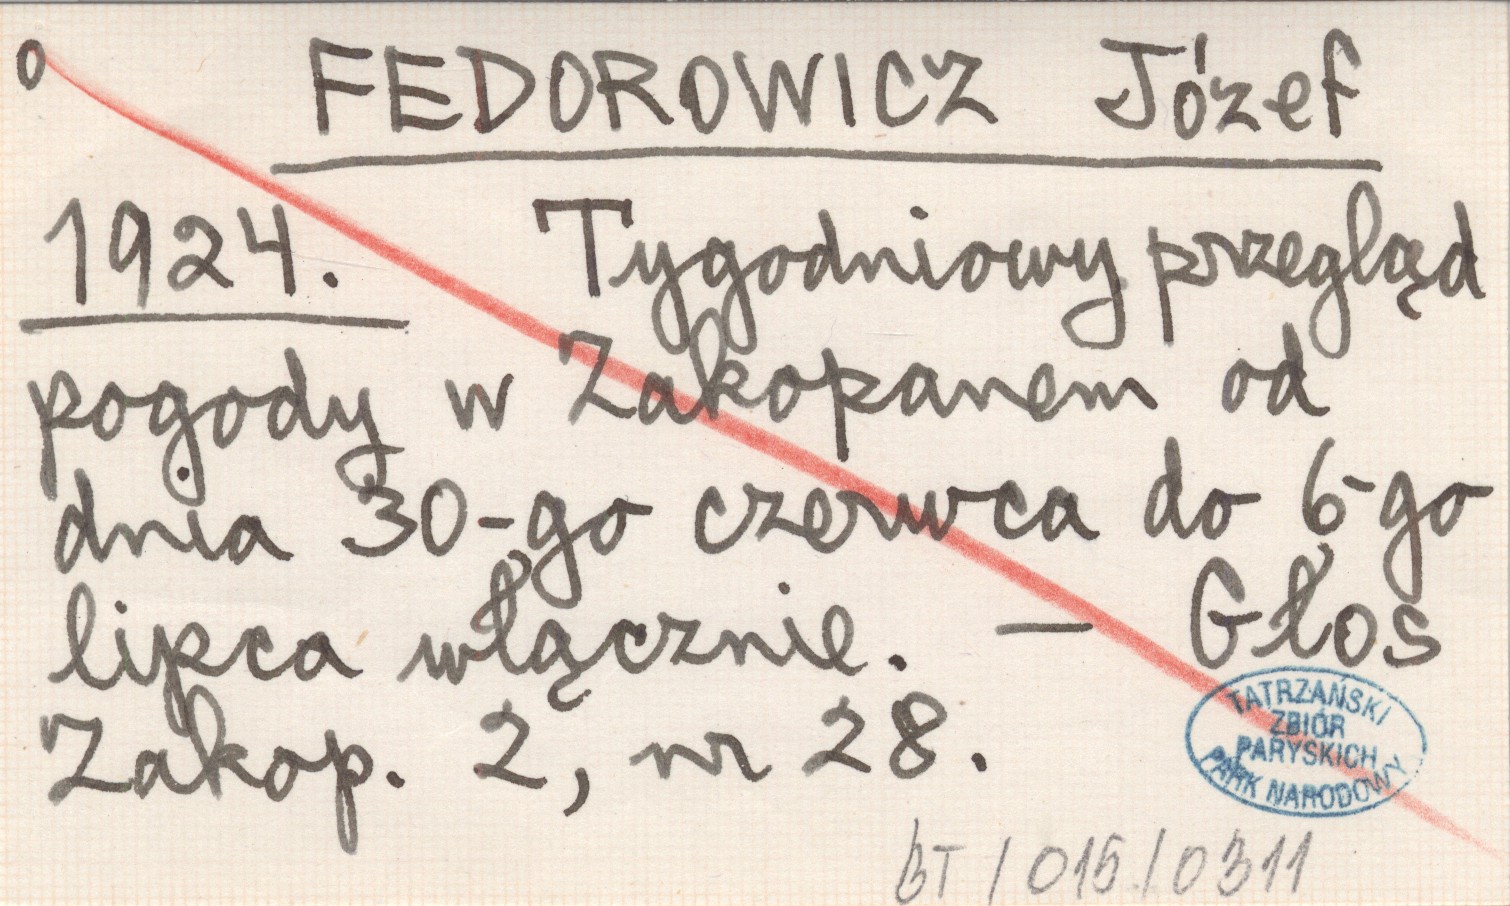 0 FEDOROWICZ Józef
1924. Tygodniowy przegląd
pogody w Zakopanem od
dnia 30-go czerwca do 6-go
lipca włącznie. — Głos
Zakop. 2, nr 28.
TATRZAŃSKI
ZBIÓR
PARYSKICH
PARK NARODOWY
BT / 015 / 0311